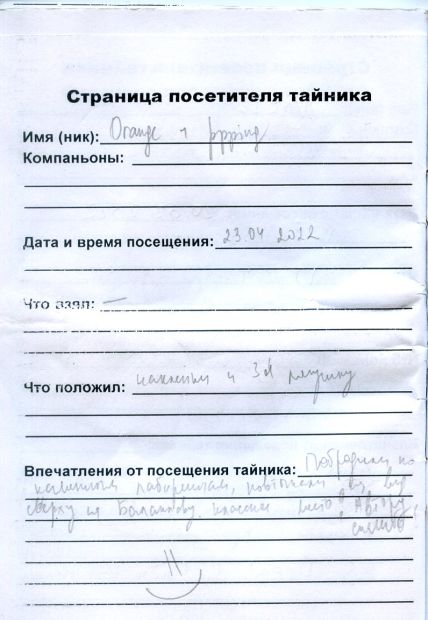 Страница посетителя тайника
Имя (ник): Orange
Компаньоны:
Дата и время посещения: 23.04 2022
Что взял: —
Что положил: наклейки и 3d
Впечатления от посещения тайника: Побродили по
каменным лабиринтам, вид
сверху на Балаклаву. классное место! Автору
спасибо!